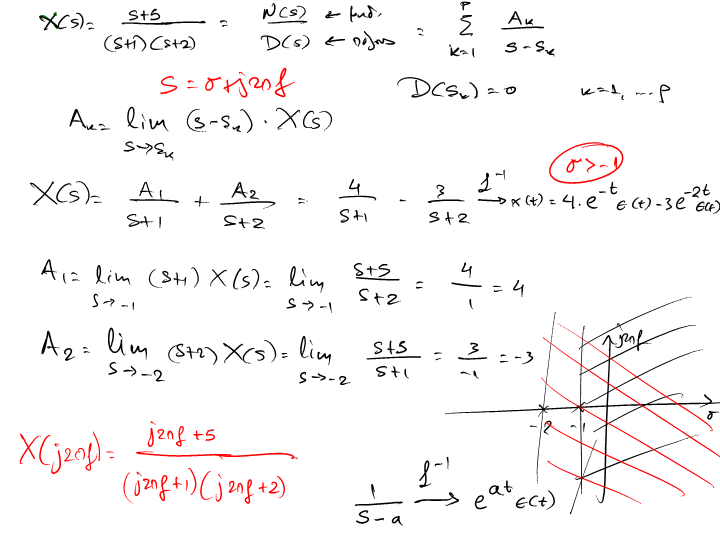 X(s) = (s+5)/((s+1)(s+2)) = N(s)/D(s) = Σ_{k=1}^{P} A_k/(s-s_k)
s = σ+j2πf
D(s_k) = 0 k=1, ... P
A_k = lim_{s→s_k} (s-s_k) · X(s)
σ>-1
X(s) = A_1/(s+1) + A_2/(s+2) = 4/(s+1) - 3/(s+2) →^{L^{-1}} x(t) = 4·e^{-t} ε(t) - 3e^{-2t} ε(t)
A_1 = lim_{s→-1} (s+1) X(s) = lim_{s→-1} (s+5)/(s+2) = 4/1 = 4
A_2 = lim_{s→-2} (s+2) X(s) = lim_{s→-2} (s+5)/(s+1) = 3/-1 = -3
j2πf
σ
-2 -1
X(j2πf) = (j2πf+5)/((j2πf+1)(j2πf+2))
1/(s-a) →^{L^{-1}} e^{at} ε(t)